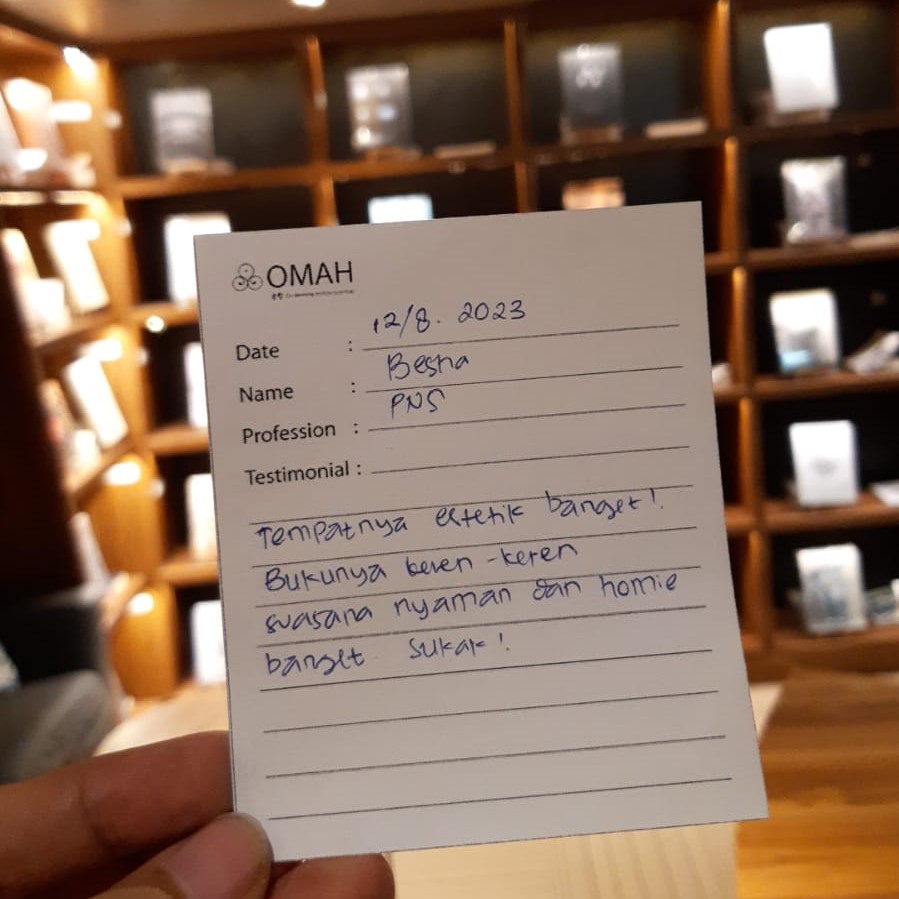 OMAH
Date : 12/8. 2023
Name : Besha
Profession : PNS
Testimonial :
Tempatnya estetik banget!
Bukunya keren-keren
suasana nyaman dan homie
banget sukak!